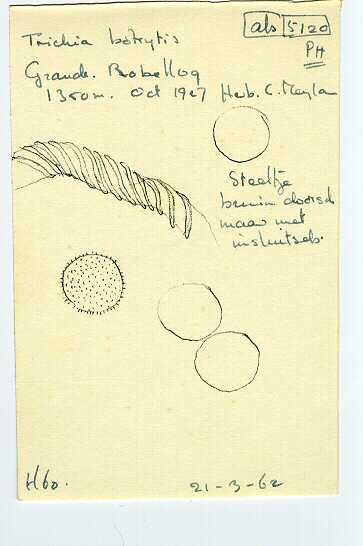 als 5120
PH
Trichia botrytis
Grands. Robellaz
1350m. Oct 1927 Herb. C. Meylan
Steeltje
bruin doorsch
maar met
insluitsels.
H60.
21-3-62